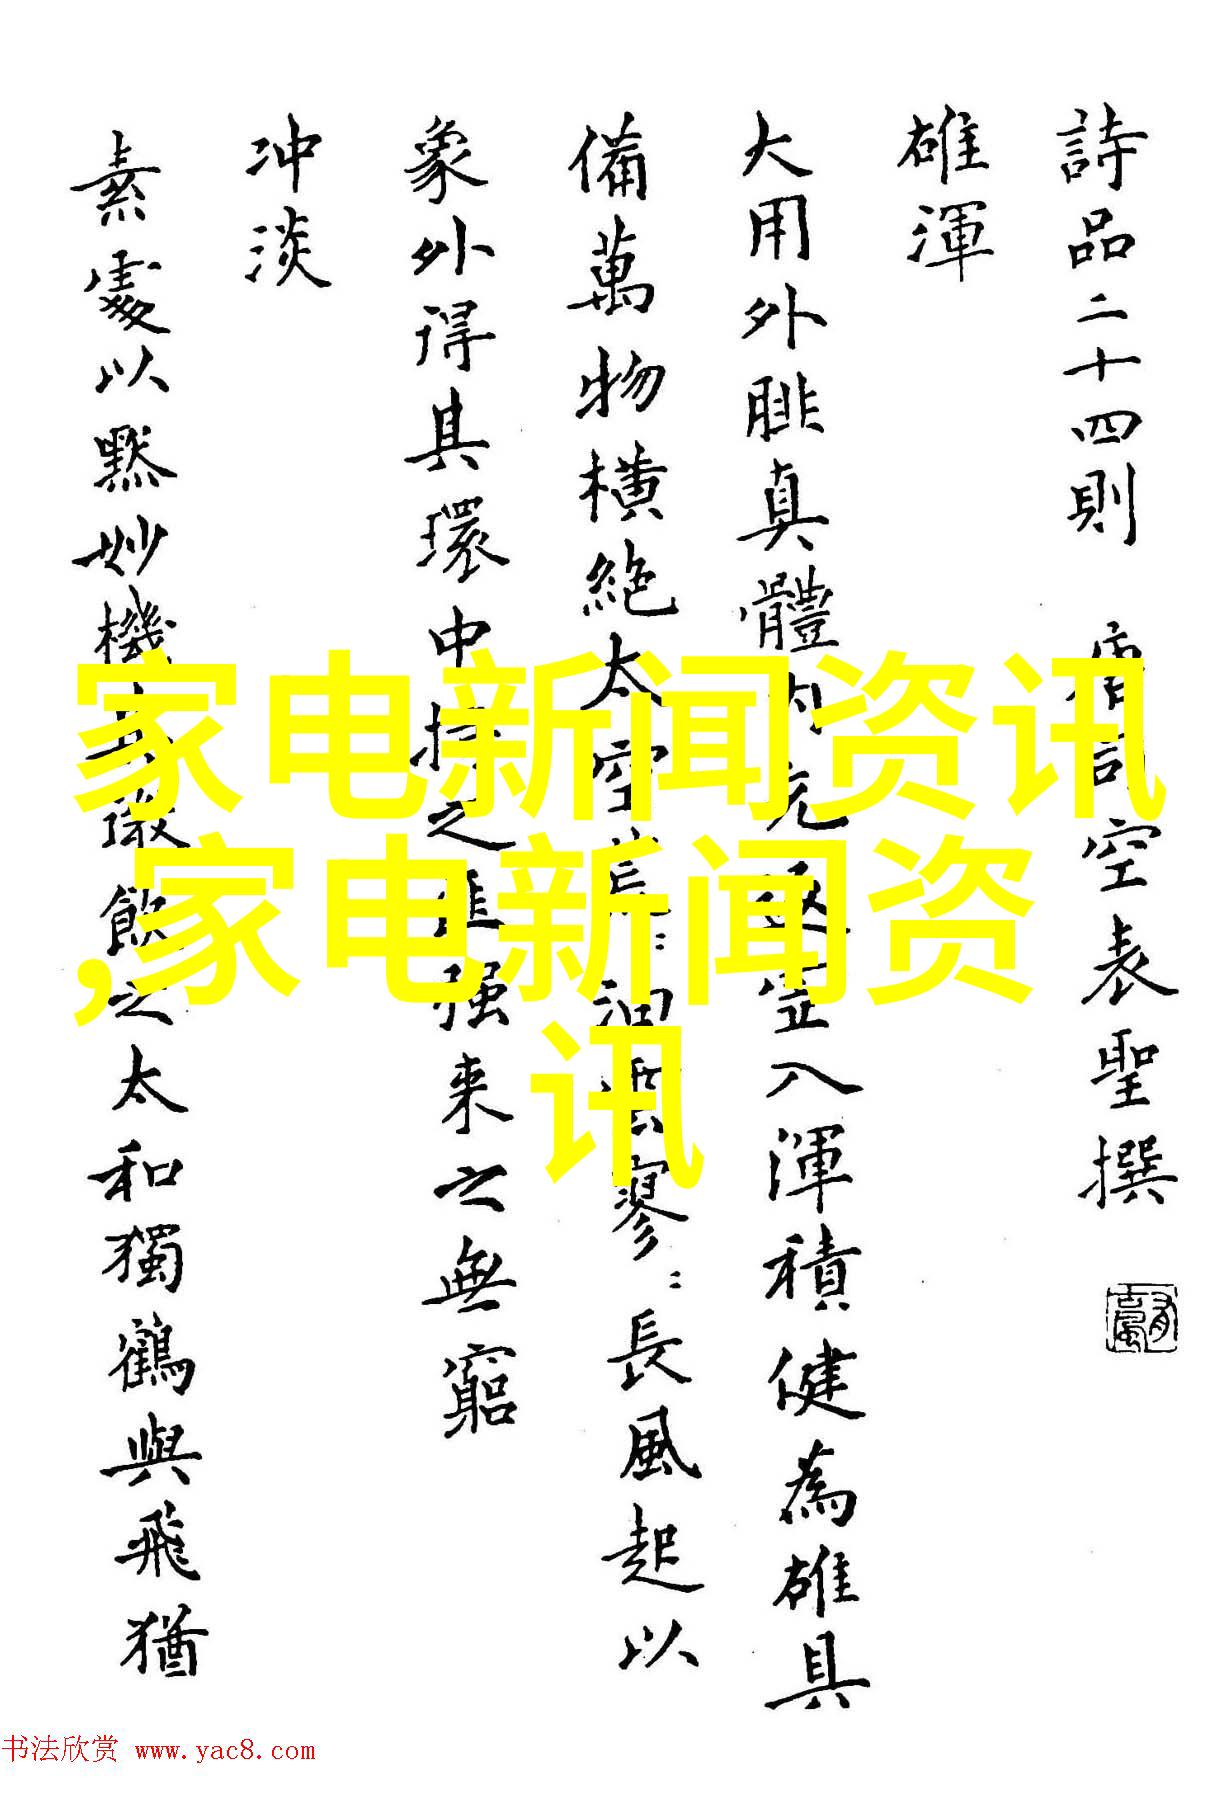 詩品二十四則 唐司空表聖撰
雄渾
大用外腓真體内充返虛入渾積健為雄具
備萬物橫絶太空荒〻油雲寥〻長風起以
象外得其環中持之匪强来之無窮
冲淡
素處以默妙機其微飲之太和獨鶴與飛猶
家电新闻资讯
,家电新闻资
讯
书法欣赏 www.yac8.com